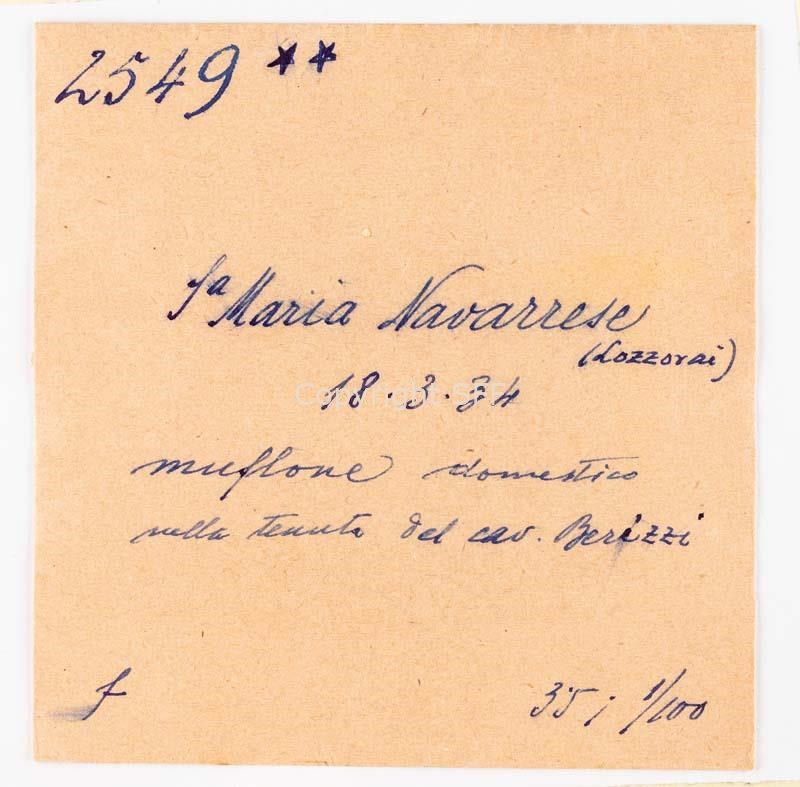 2549 **
Sa Maria Navarrese
(Lozzorai)
18.3.34
muflone domestico
nella tenuta del cav. Berizzi
f 35; 1/100